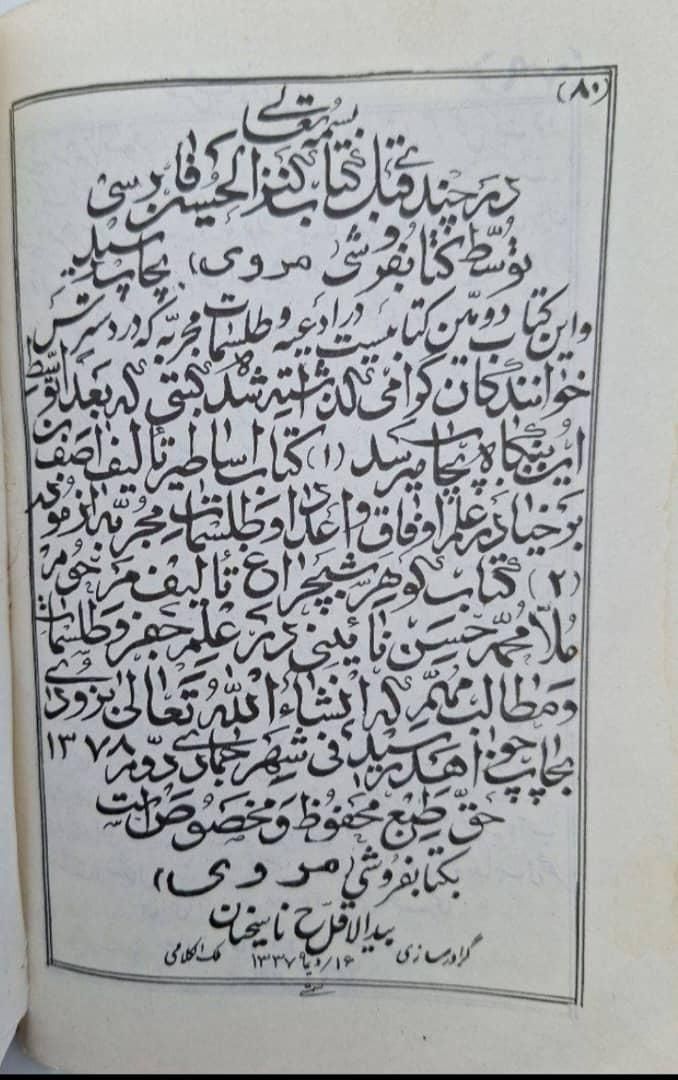 (۸۰)
بسمه تعالی
در چند ی قبل کتاب کنز الحسین فارسی
توسط کتابفروشی (مروی) بچاپ رسید
و این کتاب دومین کتابیست در ادعیه و طلسمات مجربه که در دسترس
خوانندگان گرامی گذاشته شده کتبی که بعداً توسط
این بنگاه بچاپ میرسد (۱) کتاب اساطیر تألیف آصف بن
برخیا در علم اوفاق و اعداد و طلسمات مجربه آزموده
(۲) کتاب گوهر شبچراغ تألیف مرحوم
ملا محمد حسن نائینی در علم جفر و طلسمات
و مطالب مهم که انشاء الله تعالی بزودی
بچاپ خواهد رسید فی شهر جمادی دوم ۱۳۷۸
حق طبع محفوظ و مخصوص است
بکتابفروشی (مروی)
بید الاقل ح ناسخیان
گراورسازی ۱۳۳۷ ملک الکلامی